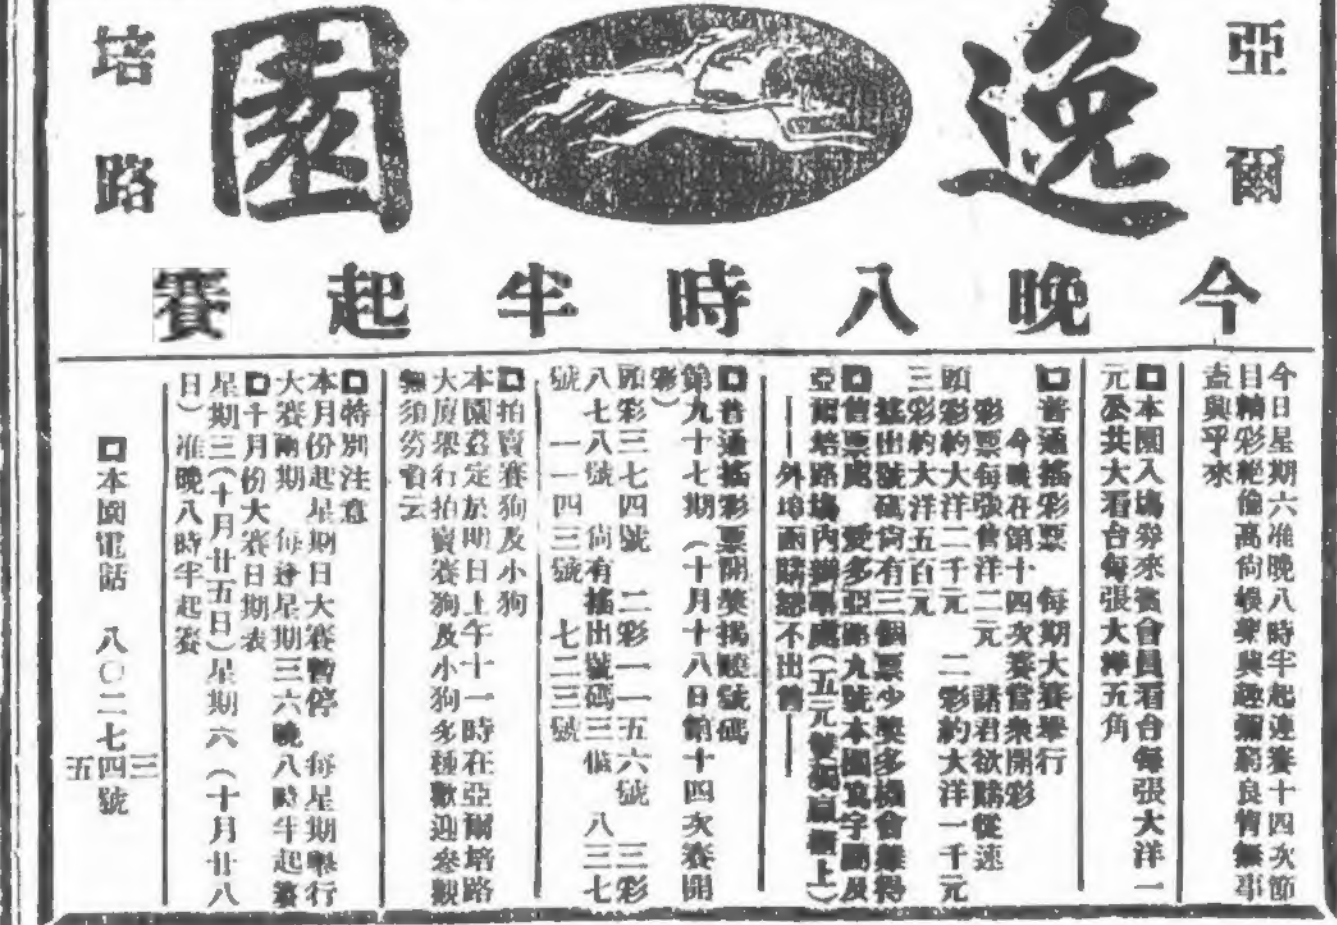 亞爾
逸園
培路
今晚八時半起賽
今日星期六准晚八時半起連賽十四次節
目精彩絕倫高尚娛樂興趣彌窮良宵無事
盍興乎來
本園入塲券來賓會員看台每張大洋一
元及共大看台每張大洋五角
普通搖彩票 每期大賽舉行
今晚在第十四次賽當衆開彩
彩票每張售洋二元 諸君欲購從速
頭彩約大洋二千元 二彩約大洋一千元
三彩約大洋五百元
搖出號碼尙有三個票少獎多機會難得
售票處 愛多亞路九號本園寫字間及
亞爾培路塲內辦事處(五元雙獨贏櫃上)
外埠函購恕不出售
普通搖彩票開獎揭曉號碼
第九十七期(十月十八日第十四次賽開
彩)
頭彩三七四號 二彩一一五六號 三彩
八七八號 尙有搖出號碼三個 八三七
號 一一四三號 七二三號
拍賣賽狗及小狗
本園茲定於明日上午十一時在亞爾培路
大廈舉行拍賣賽狗及小狗多種歡迎參觀
無須券資云
特別注意
本月份起星期日大賽暫停 每星期舉行
大賽兩期 每逢星期三六晚八時半起賽
十月份大賽日期表
星期三(十月廿五日)星期六(十月廿八
日)准晚八時半起賽
本園電話 八〇二七四號
三
五